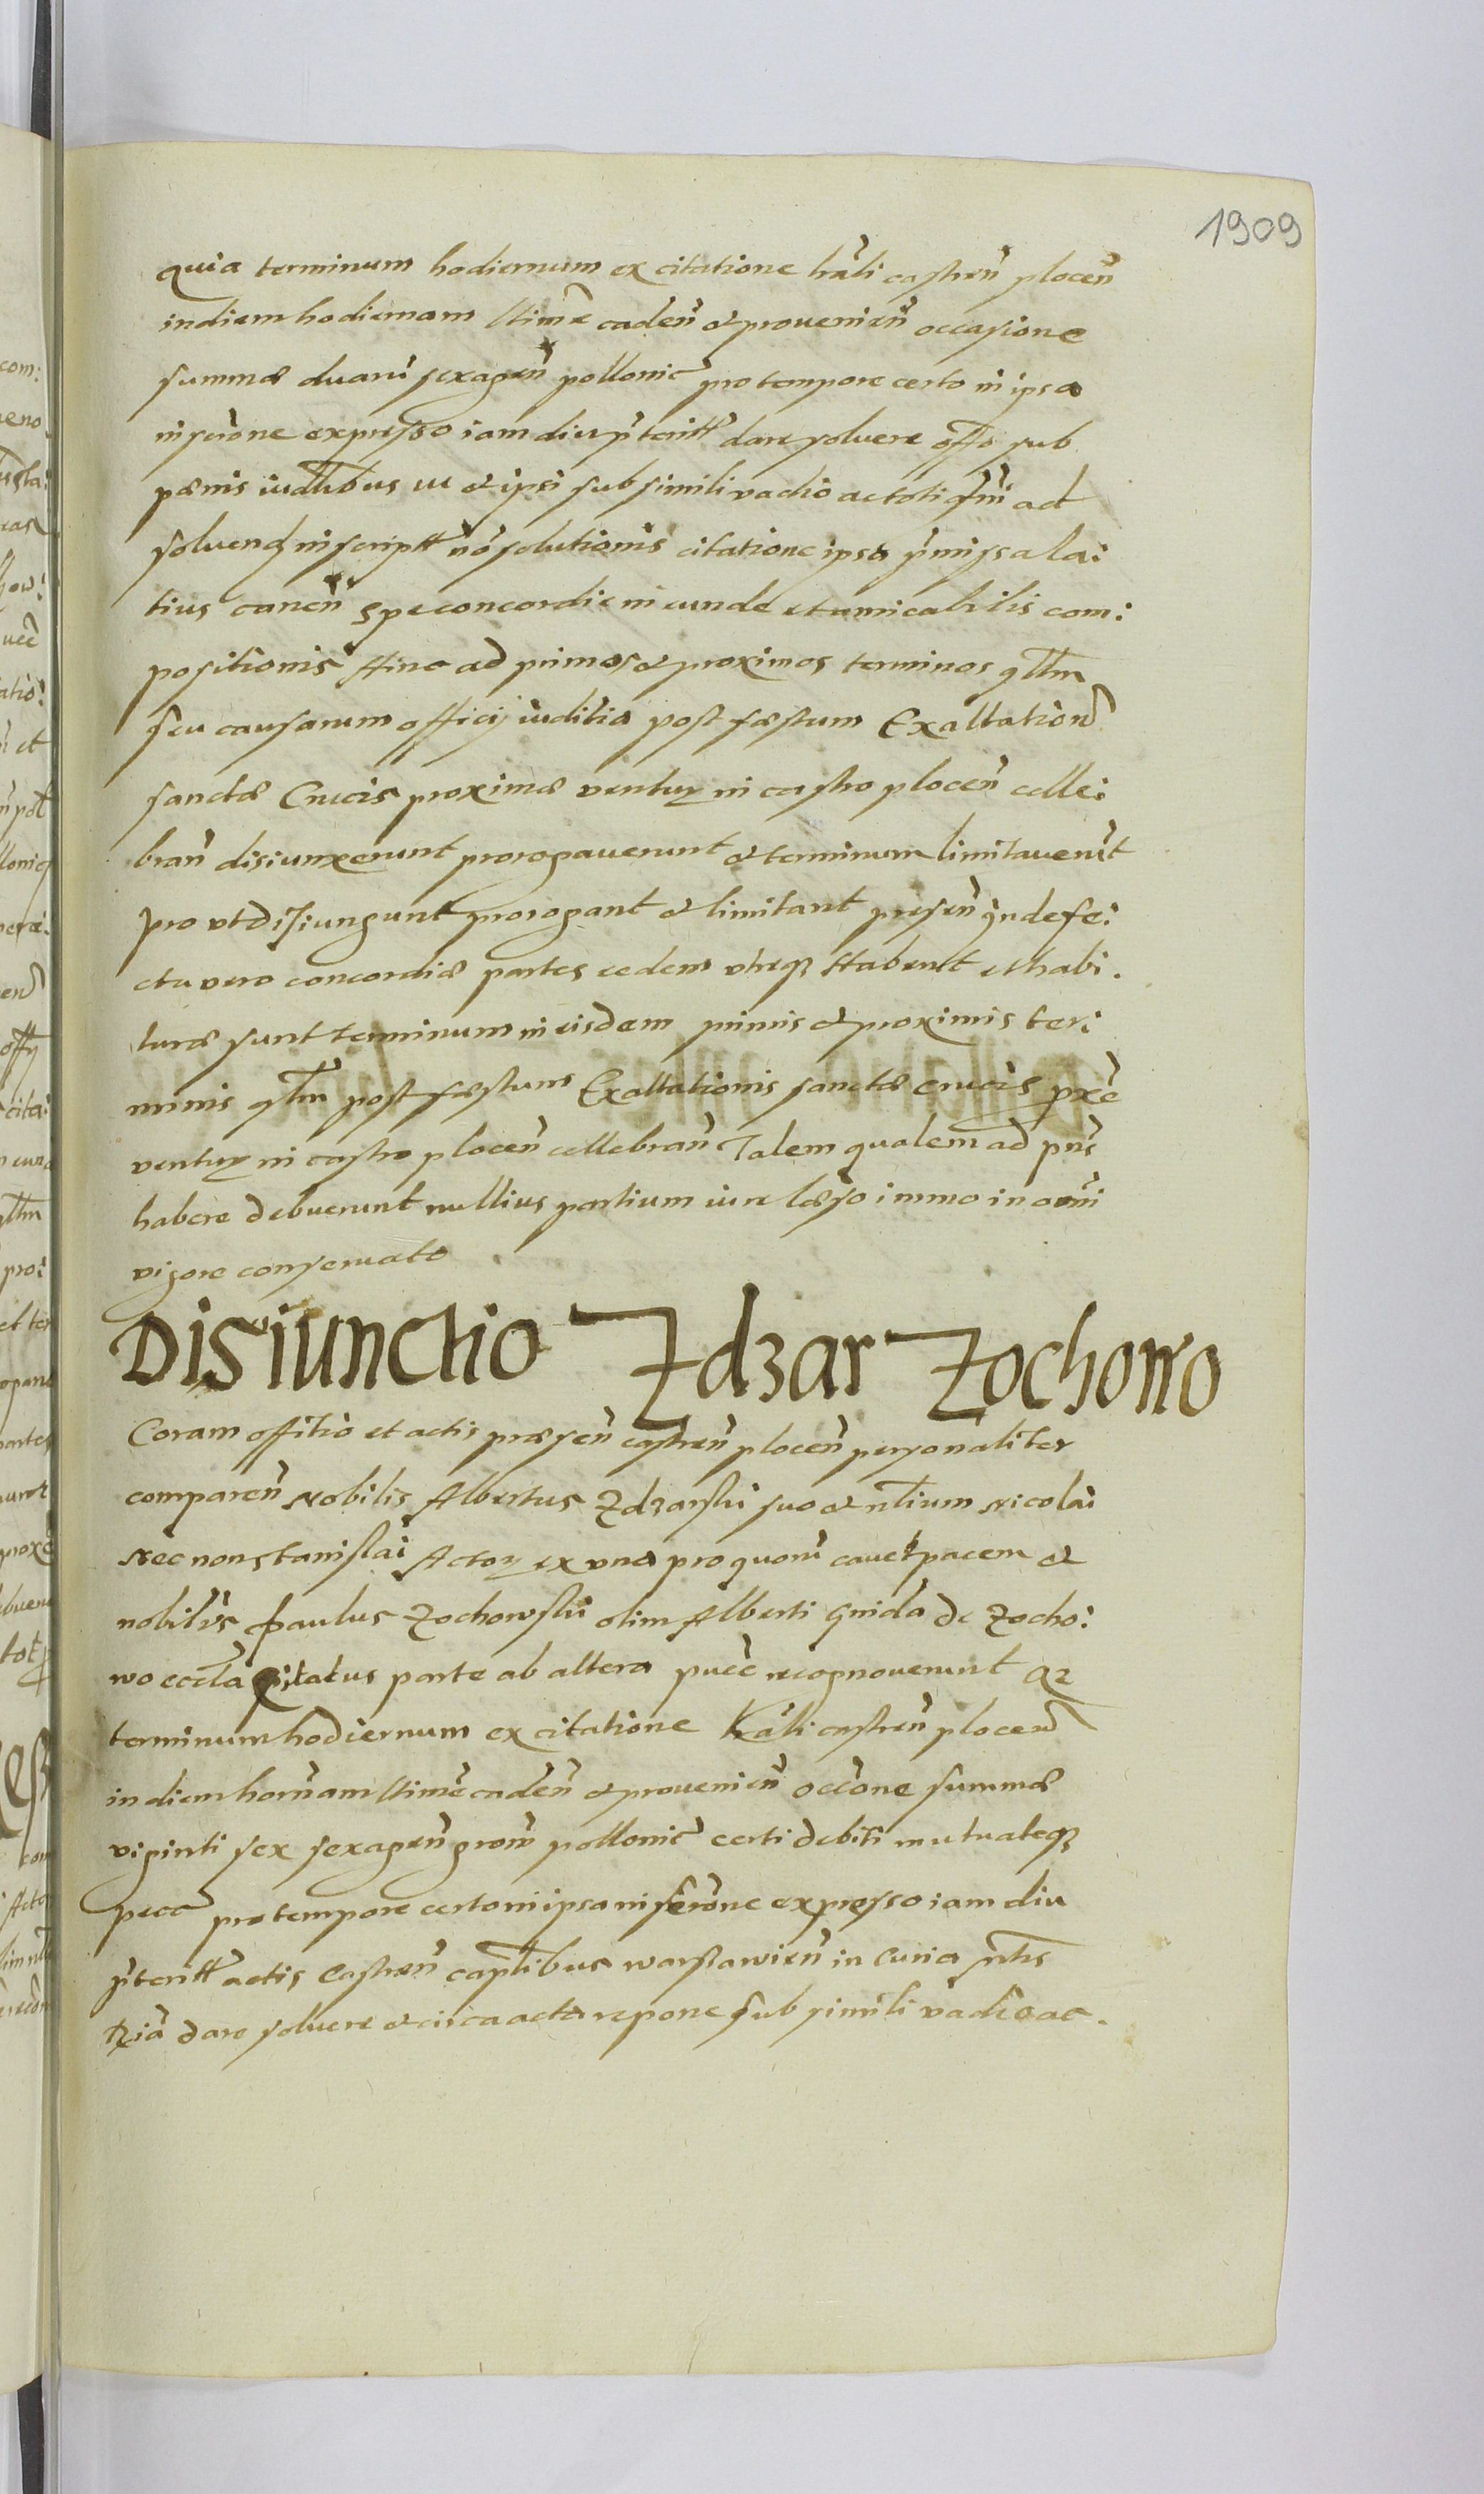 1909
quia terminum hodiernum ex citatione lrãli castreñploceñ
in diem hodiernam ltime cadeñ et provenieñ occasione
summæ duarũ sexageñ pollonic pro tempore certo in ipsa
inscrõne expresso iam diu p̃terit dare solvere offo sub
pænis iudlibus ut et ipsi sub simili vadio actoli q̃m ad
solvend inscript nõ solutionis citatione ipsa p̃missa la:
tius caneñ spe concordie in eunde et amicabilis com:
positionis hinc ad primos et proximos terminos qtlm
seu causarum officij iuditia post fæstum Exaltation
sanctæ Crucis proximæ ventur in castro ploceñ celle:
brañ disiunxerunt prorogaverunt et terminum limitaverũt
pro vt disiungunt prorogant et limitant preseñ in defe:
ctu vero concordiæ partes eedem vtreq habent et habi.
turæ sunt terminum in eisdem primis et proximis ter:
minis qtlm post fæstum Exaltationis sanctæ crucis proxẽ
ventur in castro ploceñ cellebrañ Talem qualem ad pñs
habere debuerunt nullius partium iure læso immo in omi
vigore conservato
Disiunctio Zdzar Zochowo
Coram offitio et actis præseñ castreñ ploceñ personaliter
compareñ Nobilis Albertus Zdzarski suo et nlium Nicolai
Nec non Stanislai Actor ex vna pro quorũ cavet pacem et
nobilis Paulus Zochowski olim Alberti Gnida de Zocho:
wo eccla citatus parte ab altera pũce recognoverunt Qz
terminum hodiernum ex citatione lrãli castreñ ploceñ
in diem hornam ltime cadeñ et provenieñ occõne summæ
viginti sex sexageñ grorũ pollonic certi debiti mutuateq
pecc pro tempore certo in ipsa inscrõne expresso iam diu
p̃terit actis Castreñ caplibus warssawieñ in Curia
Riã dare solvere et circa acta repone sub simili vadio ac.